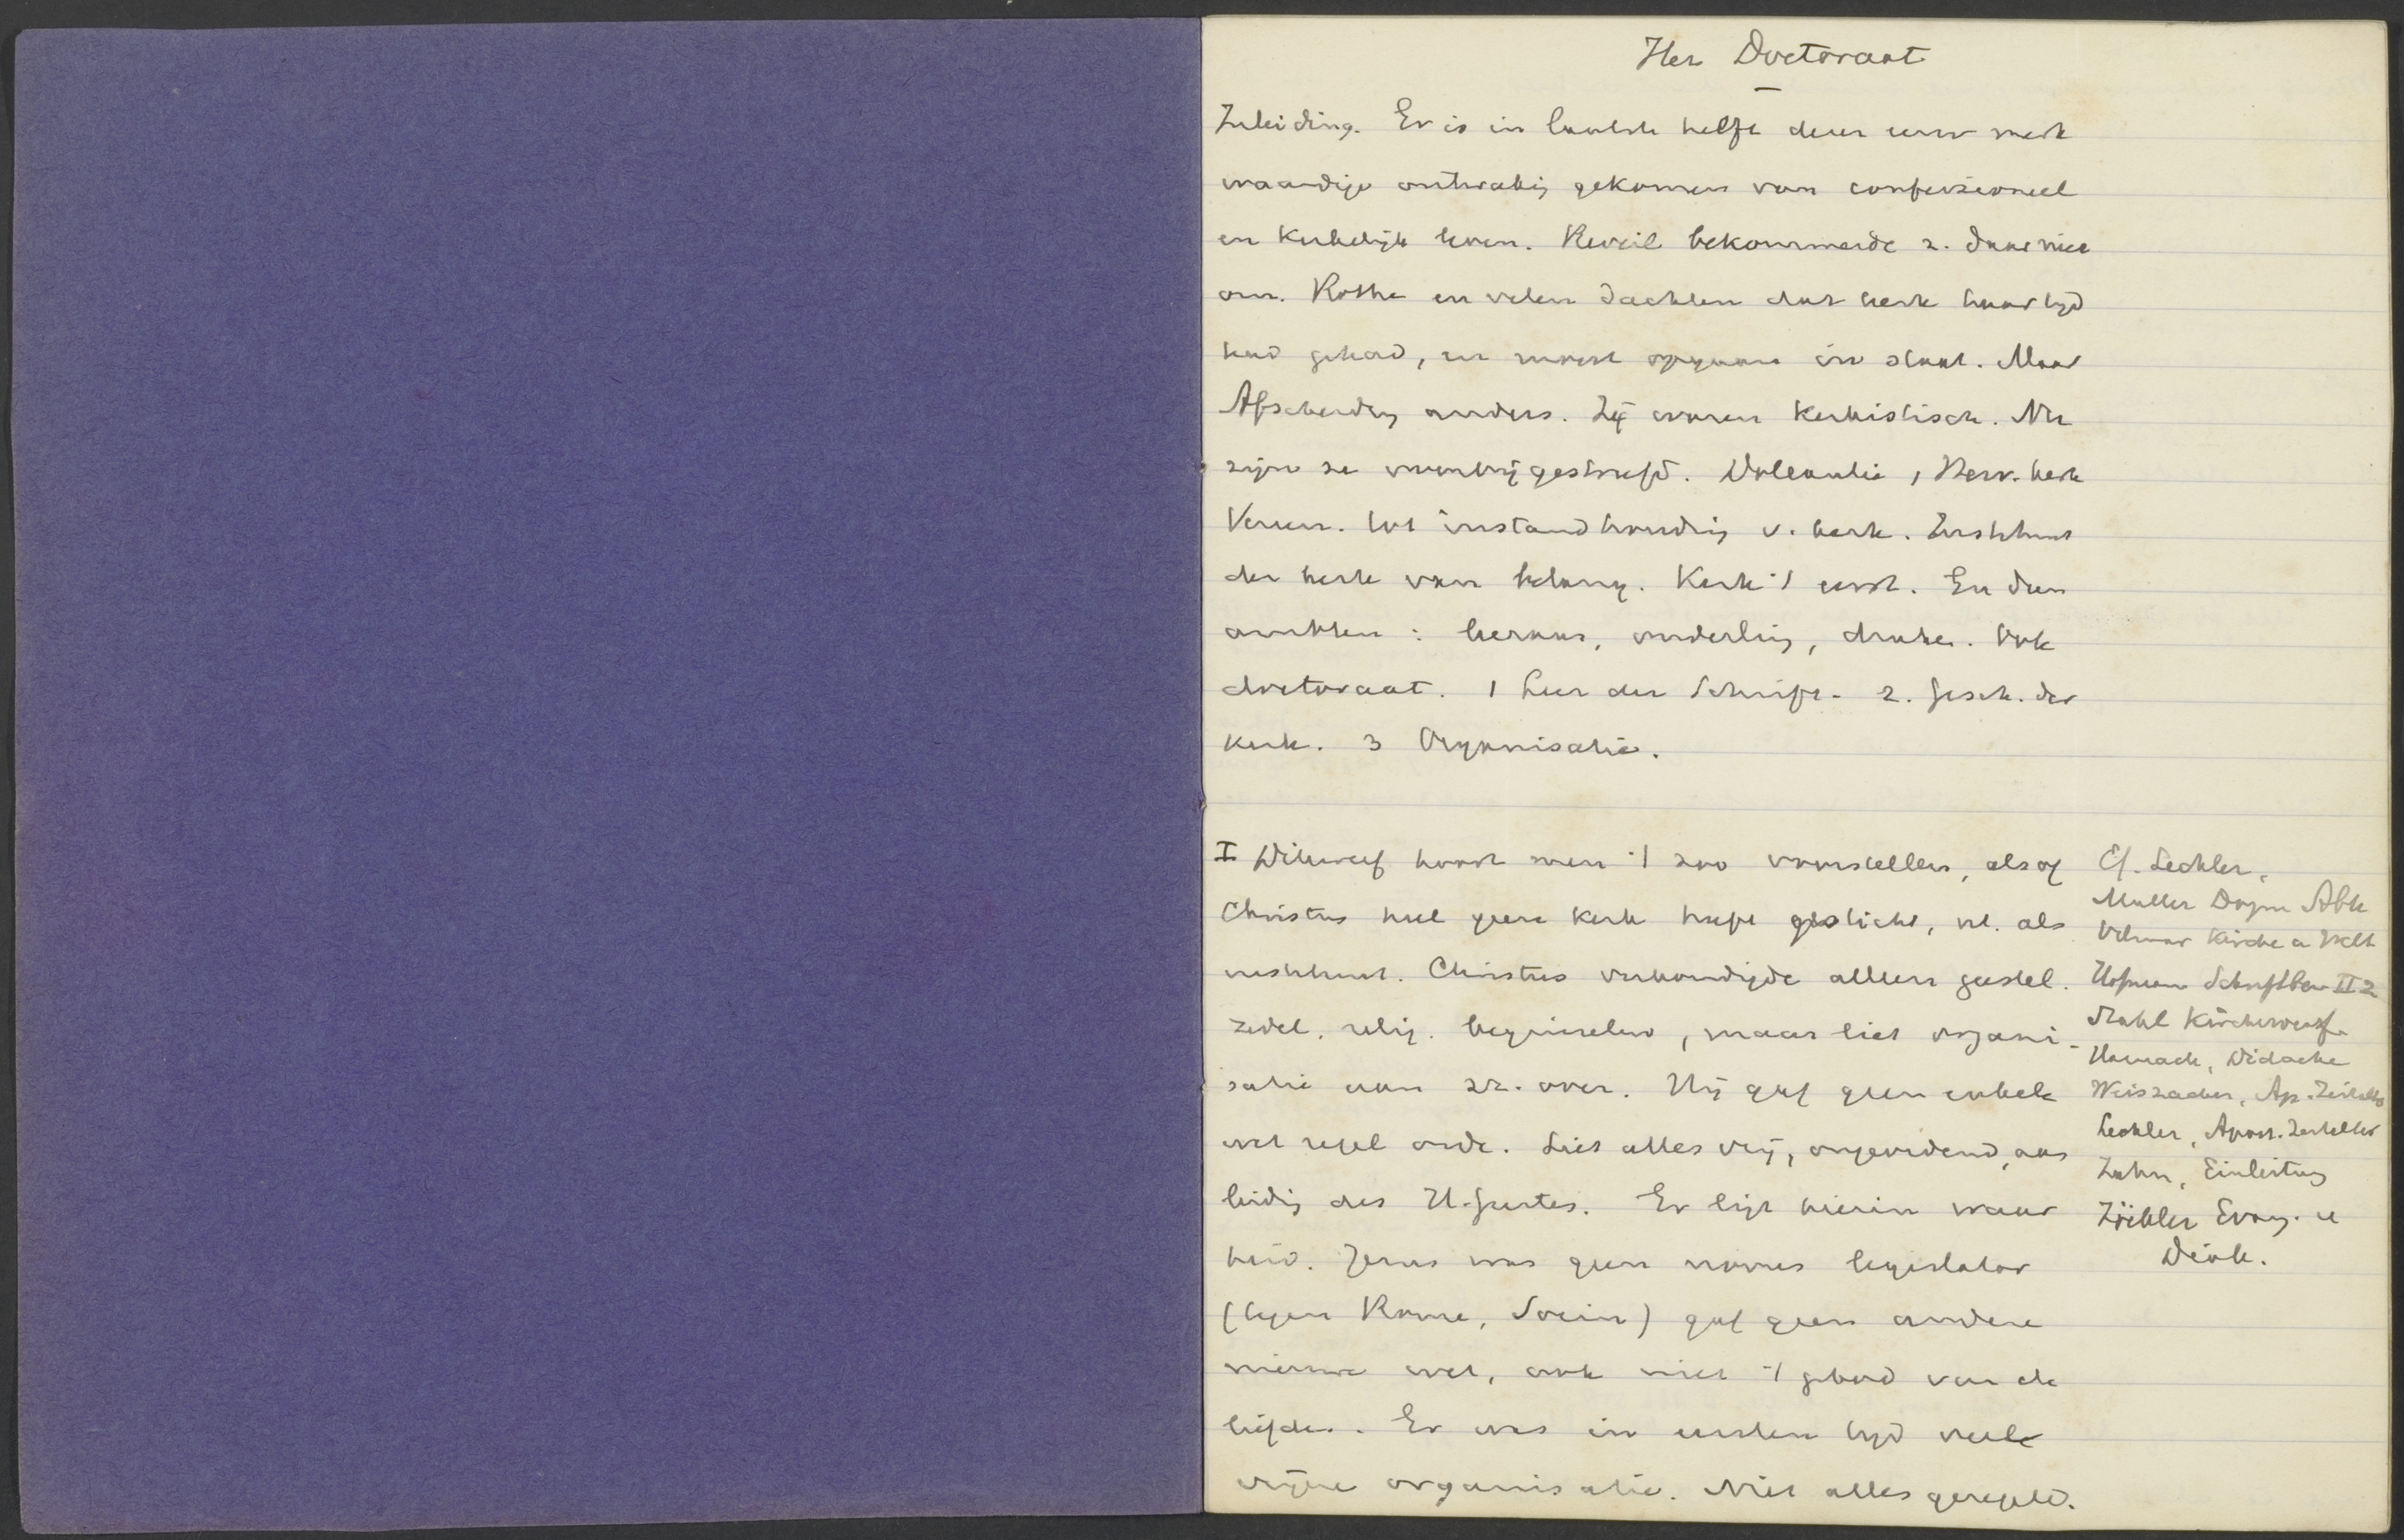 Het Doctoraat
Inleiding. Er is in laatste helft dezer eeuw merk
waardige ontwakig gekomen van confessioneel
en Kerkelijk leven. Reveil bekommerde z. daar niet
om. Rothe en velen dachten dat kerk haar tijd
had gehad, en moest opgaan in staat. Maar
Afscheiding anders. Zij waren Kerkistisch. Nu
zijn ze voorbijgestreefd. Doleantie, Herv. kerk
Vereen. tot instandhoudig v. kerk. Instituut
der kerk van belang. Kerk 't eerst. En dan
ambten: leeraar, ouderling, diaken. Ook
doctoraat. 1 Leer der Schrift. 2. Gesch. der
Kerk. 3 Organisatie.
I Dikwerf hoort men 't zoo voorstellen, alsof
Christus heel geen Kerk heeft gesticht, nl. als
instituut. Christus verkondigde alleen geestel.
zedel. relig. beginselen, maar liet organi-
satie aan zz. over. Hij gaf geen enkele
wet regel orde. Liet alles vrij, ongeordend, aan
leidig des H. Geestes. Er ligt hierin waar
heid. Jezus was geen novus legislator
(tegen Rome, Socin) gaf geen andere
nieuwe wet, ook niet 't gebod van de
liefde. Er was in eersten tijd veel
vrijere organisatie. Niet alles geregeld.
Cf. Lechler,
Muller Dogm Abh
Vilmar Kirche u Welt
Hofmann Schriftbew II 2
Stahl Kirchenverf.
Harnack, Didache
Weiszacker, Ap. Zeitalter
Lechler, Apost. Zeitalter
Zahn, Einleitung
Zöckler Evang. u
Diak.